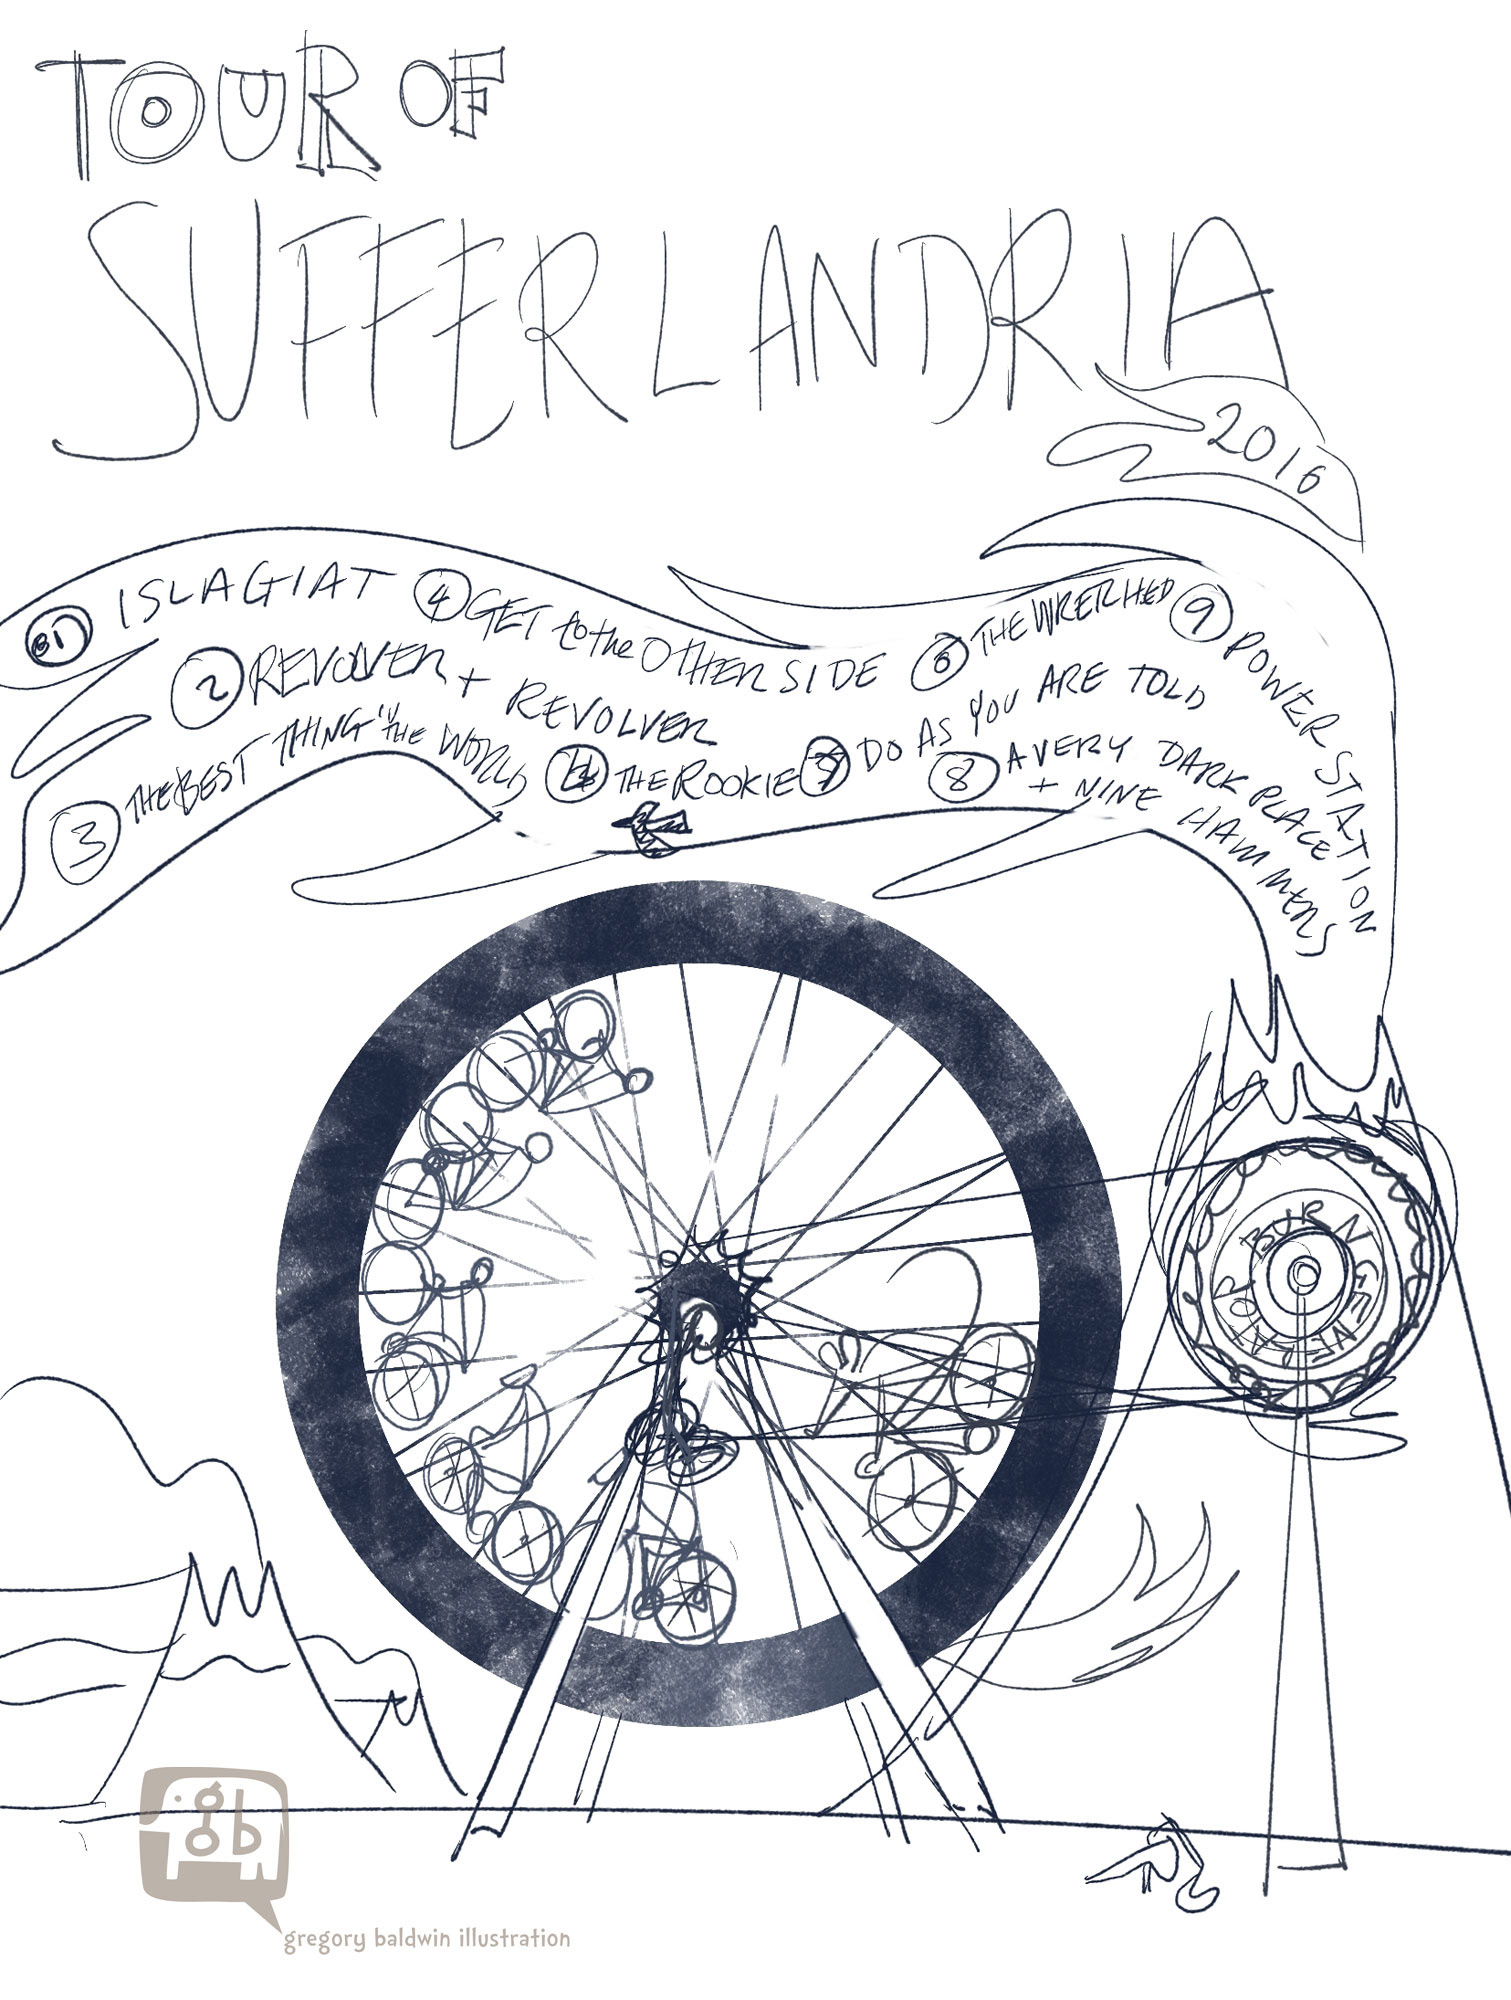 TOUR OF
SUFFERLANDRIA
2016
1 ISLAGIAT
2 REVOLVER + REVOLVER
3 THE BEST THING in the WORLD
4 GET to the OTHER SIDE
THE ROOKIE
6 THE WRERHED
DO AS YOU ARE TOLD
8 A VERY DARK PLACE
+ NINE HAMMERS
9 POWER STATION
BURN GENERATOR
gb
gregory baldwin illustration